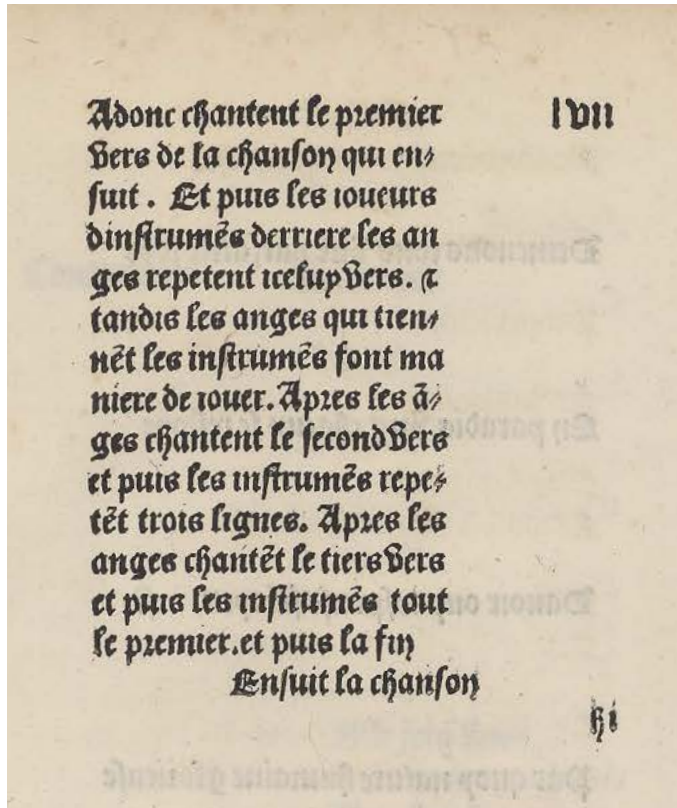 Adonc chantent le premier
vers de la chanson qui en⸗
suit . Et puis les ioueurs
dinstrumēs derriere les an
ges repetent iceluy vers. ⁊
tandis les anges qui tien⸗
nēt les instrumēs font ma
niere de iouer. Apres les ā⸗
ges chantent le second vers
et puis les instrumēs repe⸗
tēt trois lignes. Apres les
anges chantēt le tiers vers
et puis les instrumēs tout
le premier.et puis la fin
Ensuit la chanson
lvii
hi